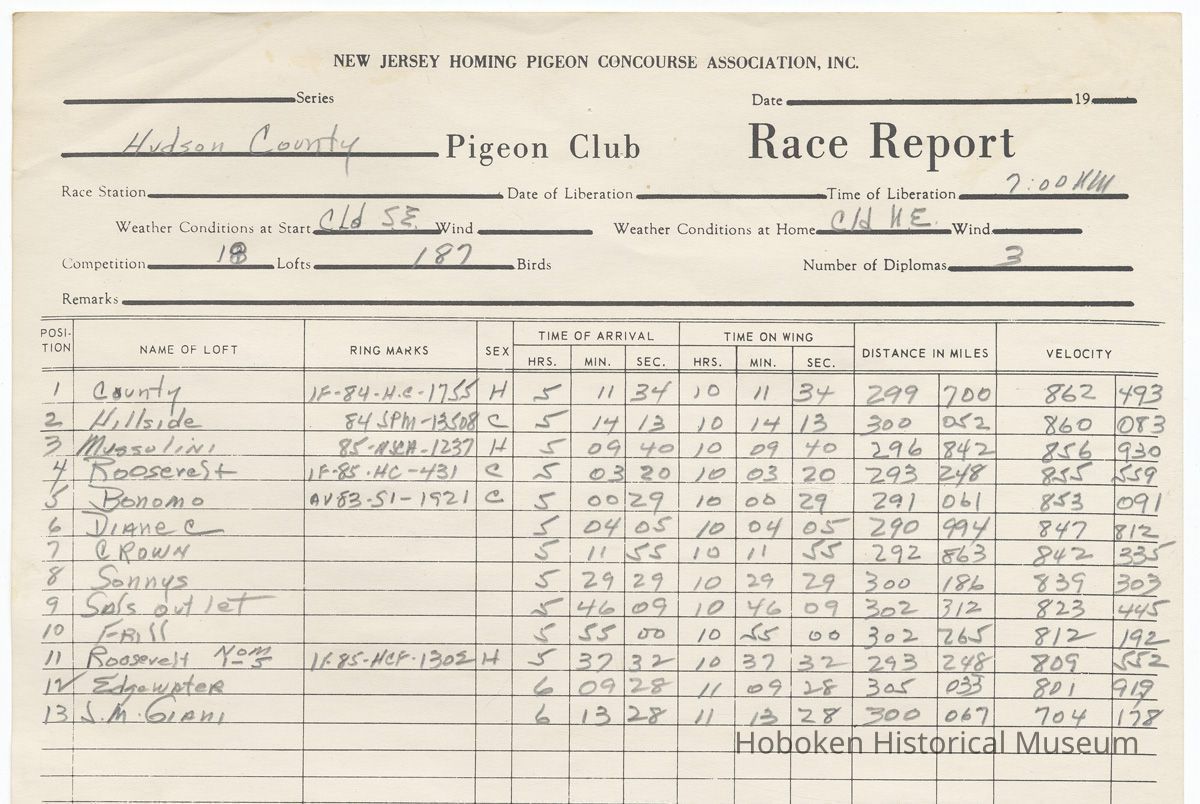 NEW JERSEY HOMING PIGEON CONCOURSE ASSOCIATION, INC.
Series Date 19
Hudson County Pigeon Club Race Report
Race Station Date of Liberation Time of Liberation 7:00 AM
Weather Conditions at Start Cld S.E. Wind Weather Conditions at Home Cld N.E. Wind
Competition 18 Lofts 187 Birds Number of Diplomas 3
Remarks
POSI-TION NAME OF LOFT RING MARKS SEX TIME OF ARRIVAL TIME ON WING DISTANCE IN MILES VELOCITY
HRS. MIN. SEC. HRS. MIN. SEC.
1 County IF-84-H.C-1755 H 5 11 34 10 11 34 299 700 862 493
2 Hillside 84 SPM-13508 C 5 14 13 10 14 13 300 052 860 083
3 Mussolini 85-NSCA-1237 H 5 09 40 10 09 40 296 842 856 930
4 Roosevelt IF-85-HC-431 C 5 03 20 10 03 20 293 248 855 559
5 Bonomo AV83-SI-1921 C 5 00 29 10 00 29 291 061 853 091
6 Diane C 5 04 05 10 04 05 290 994 847 812
7 CROWN 5 11 55 10 11 55 292 863 842 335
8 Sonnys 5 29 29 10 29 29 300 186 839 303
9 Sals outlet 5 46 09 10 46 09 302 312 823 445
10 Frill 5 55 00 10 55 00 302 265 812 192
11 Roosevelt Nom 1-5 IF-85-HCF-1302 H 5 37 32 10 37 32 293 248 809 552
12 Edgewater 6 09 28 11 09 28 305 033 801 919
13 J.M. Giani 6 13 28 11 13 28 300 067 704 178
Hoboken Historical Museum